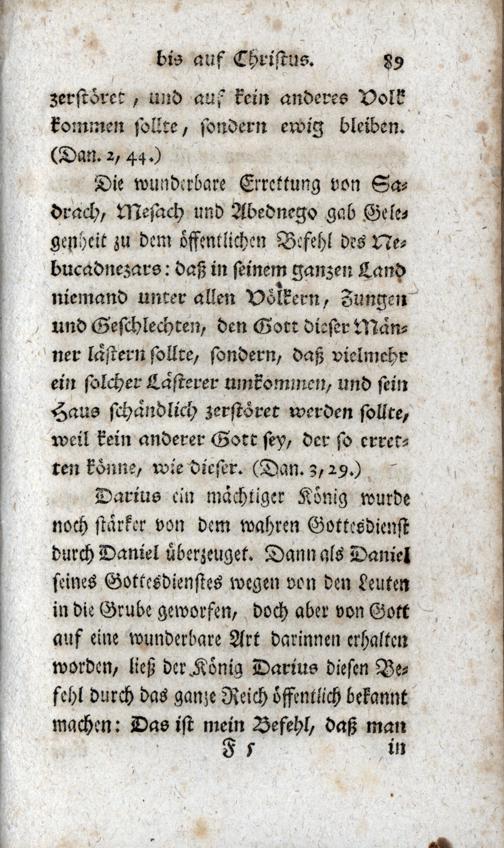 bis auf Christus. 89
zerstöret, und auf kein anderes Volk
kommen sollte, sondern ewig bleiben.
(Dan. 2, 44.)
Die wunderbare Errettung von Sa-
drach, Mesach und Abednego gab Gele-
genheit zu dem öffentlichen Befehl des Ne-
bucadnezars: daß in seinem ganzen Land
niemand unter allen Völkern, Zungen
und Geschlechten, den Gott dieser Män-
ner lästern sollte, sondern, daß vielmehr
ein solcher Lästerer umkommen, und sein
Haus schändlich zerstöret werden sollte,
weil kein anderer Gott sey, der so erret-
ten könne, wie dieser. (Dan. 3, 29.)
Darius ein mächtiger König wurde
noch stärker von dem wahren Gottesdienst
durch Daniel überzeuget. Dann als Daniel
seines Gottesdienstes wegen von den Leuten
in die Grube geworfen, doch aber von Gott
auf eine wunderbare Art darinnen erhalten
worden, ließ der König Darius diesen Be-
fehl durch das ganze Reich öffentlich bekannt
machen: Das ist mein Befehl, daß man
F 5 in